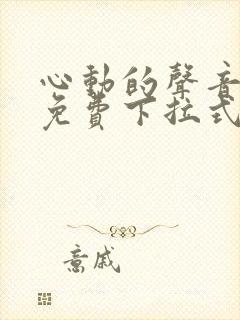 心動的聲音
免費下拉式
意戚